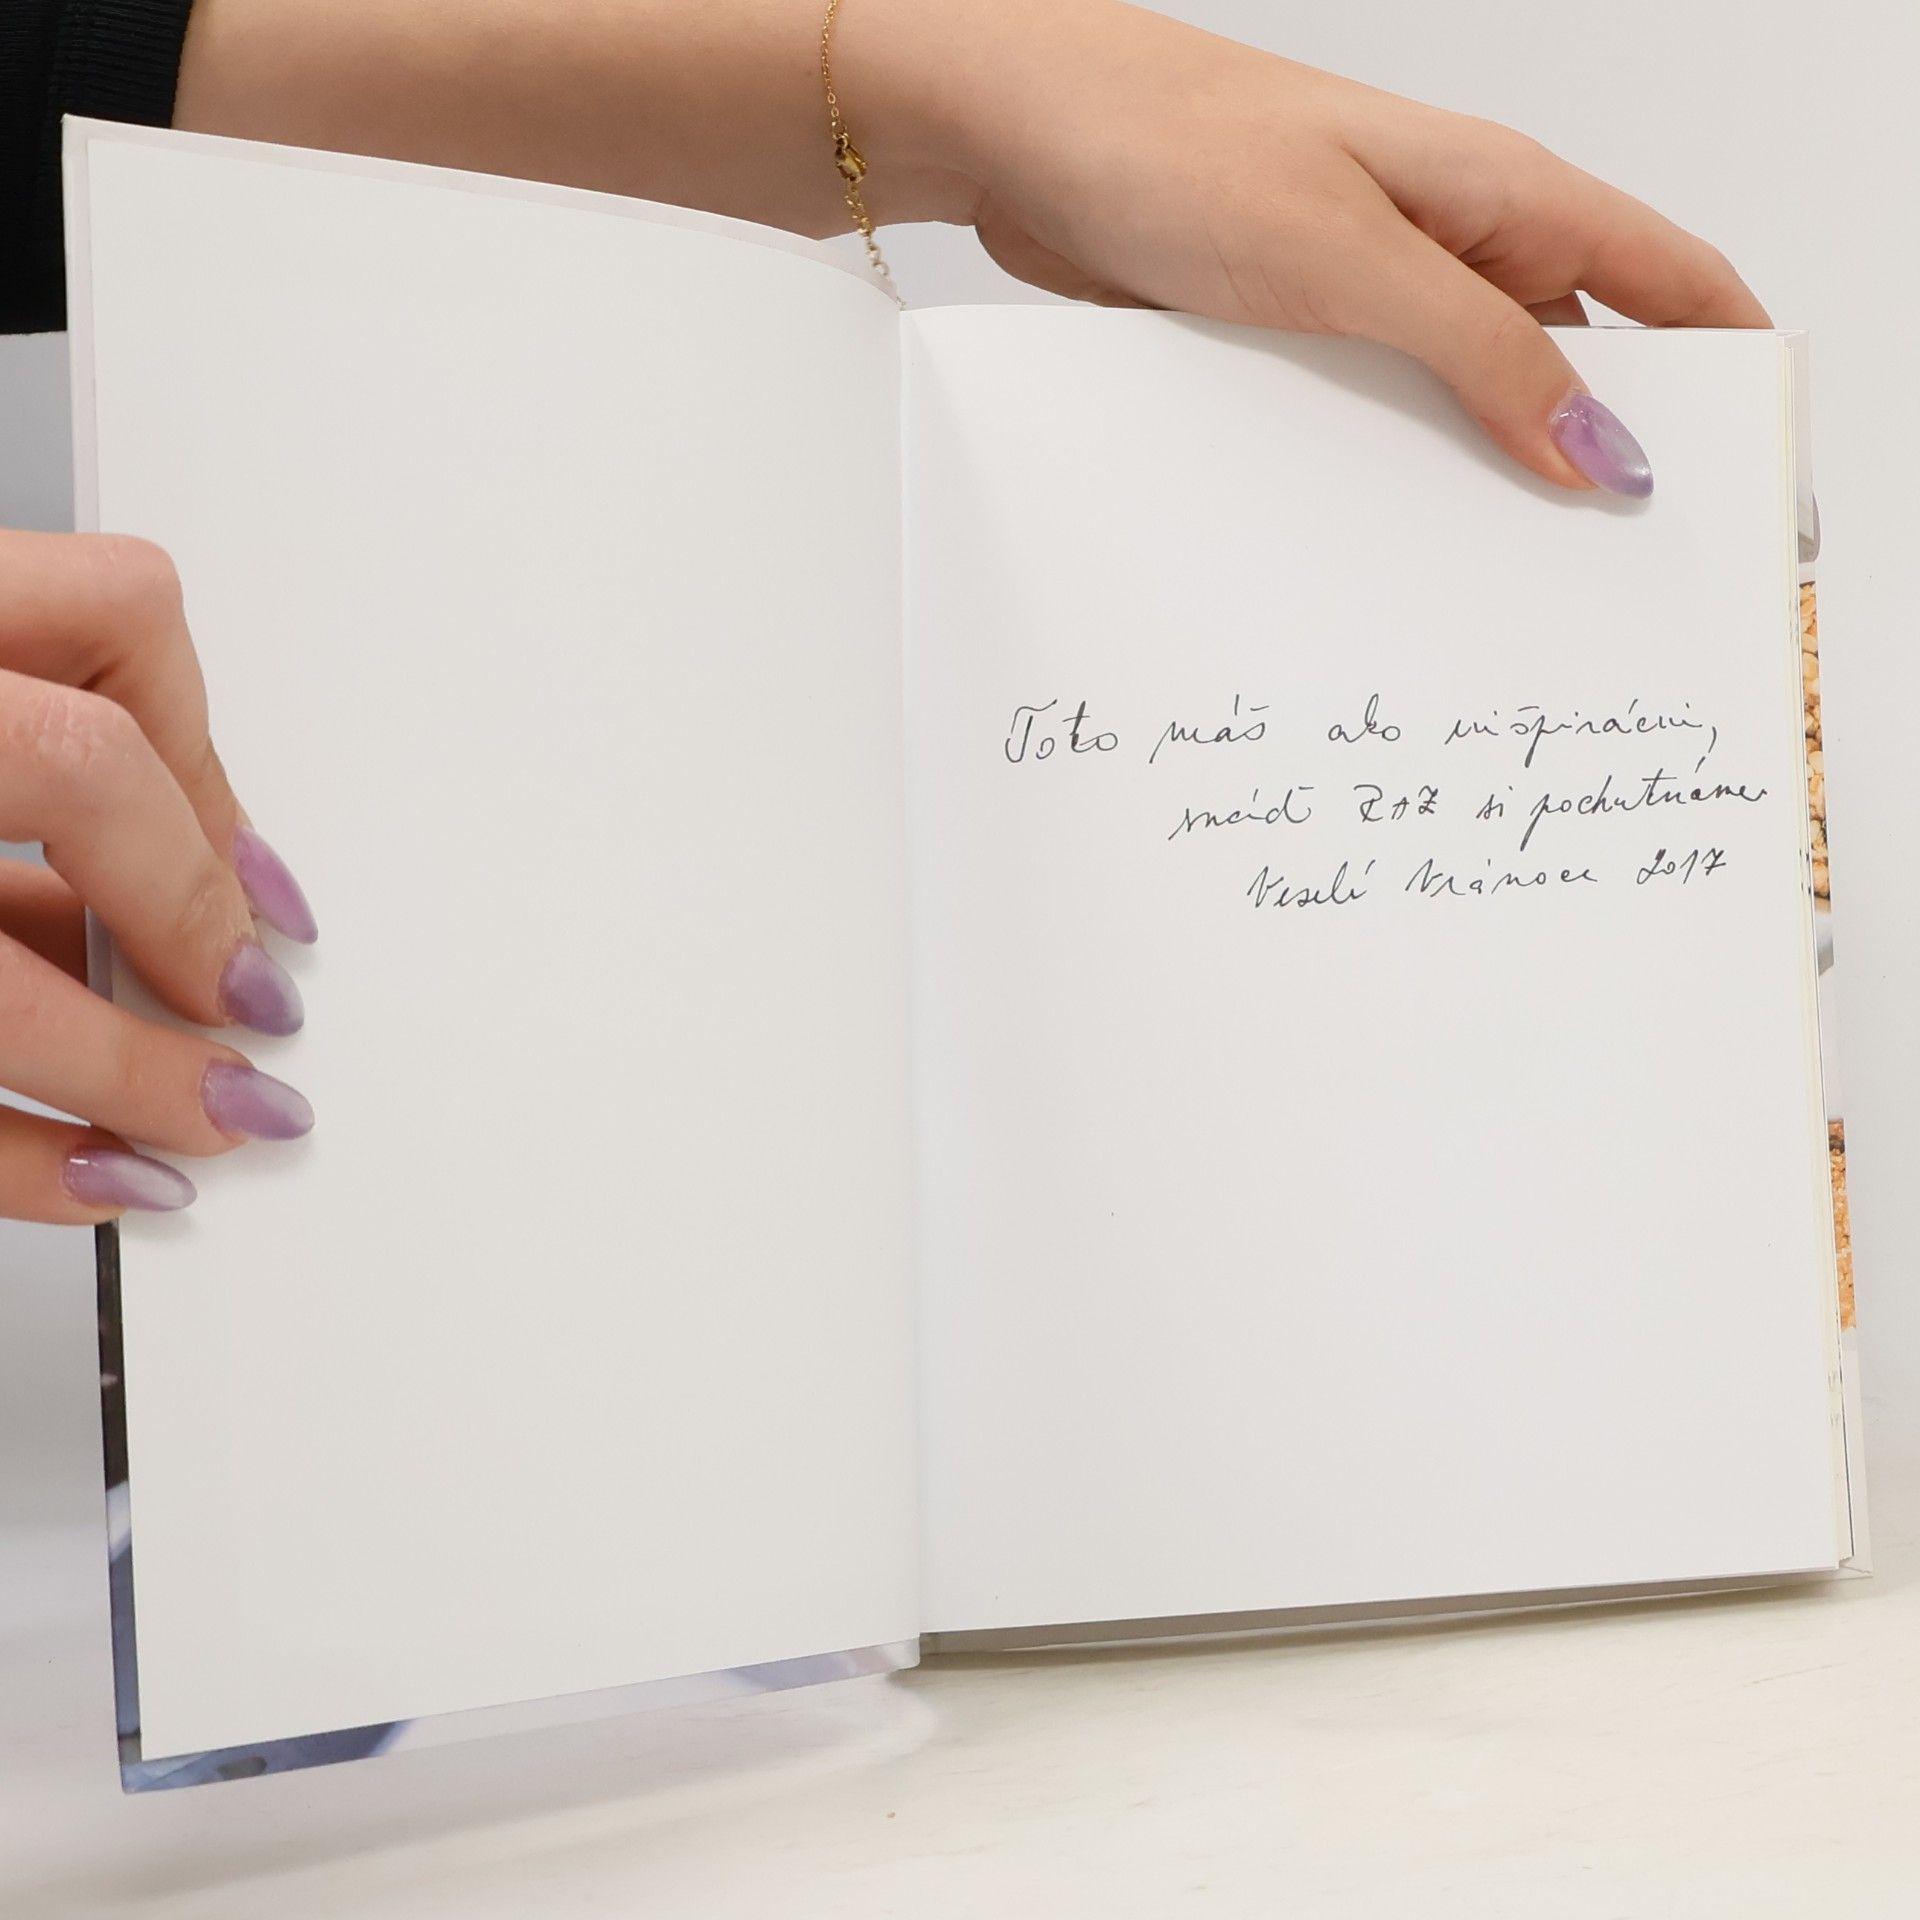 Toto máš ako inšpiráciu,
snáď RAZ si pochutnáme
Veselé Vianoce 2017